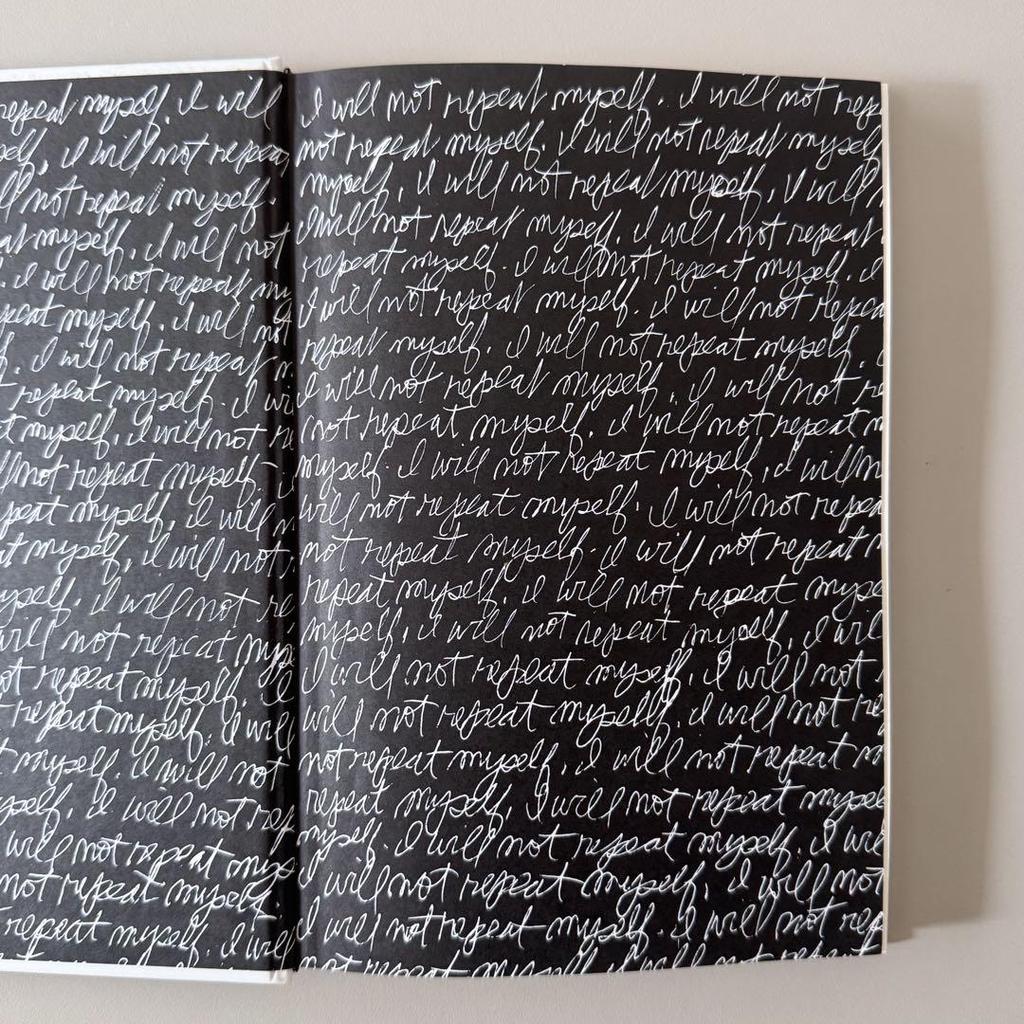 repeat myself. I will
self, i will not repea
ll not repeat myself.
at myself. I will not
. I will not repeat my
peat myself. I will not
f. I will not repeat m
t repeat myself. I wi
t myself. I will not re
ll not repeat myself. i
peat myself, I will n
at myself, i will not
yself. I will not re
will not repeat mys
ot repeat myself. I
t repeat myself. I will
myself. I will not
yself. I will not rep
will not repeat mys
not repeat myself.
t repeat myself. I will
I will not repeat myself. I will not rep
not repeat myself. I will not repeat myself
myself, I will not repeat myself, I will
I will not repeat myself. I will not repeat
repeat myself. I will not repeat myself. I
I will not repeat myself. I will not repea
repeat myself. I will not repeat myself.
I will not repeat myself. I will not re
not repeat myself. I will not repeat m
myself. I will not repeat myself, I will n
will not repeat myself. I will not repea
not repeat myself. I will not repeat m
repeat myself. I will not repeat myse
myself, I will not repeat myself, I will
I will not repeat myself. I will not
will not repeat myself. I will not re
not repeat myself. I will not repeat m
repeat myself. I will not repeat myse
myself. I will not repeat myself. I will
I will not repeat myself. I will not
I will not repeat myself. I will not rep
not repeat myself. I will not repeat myself